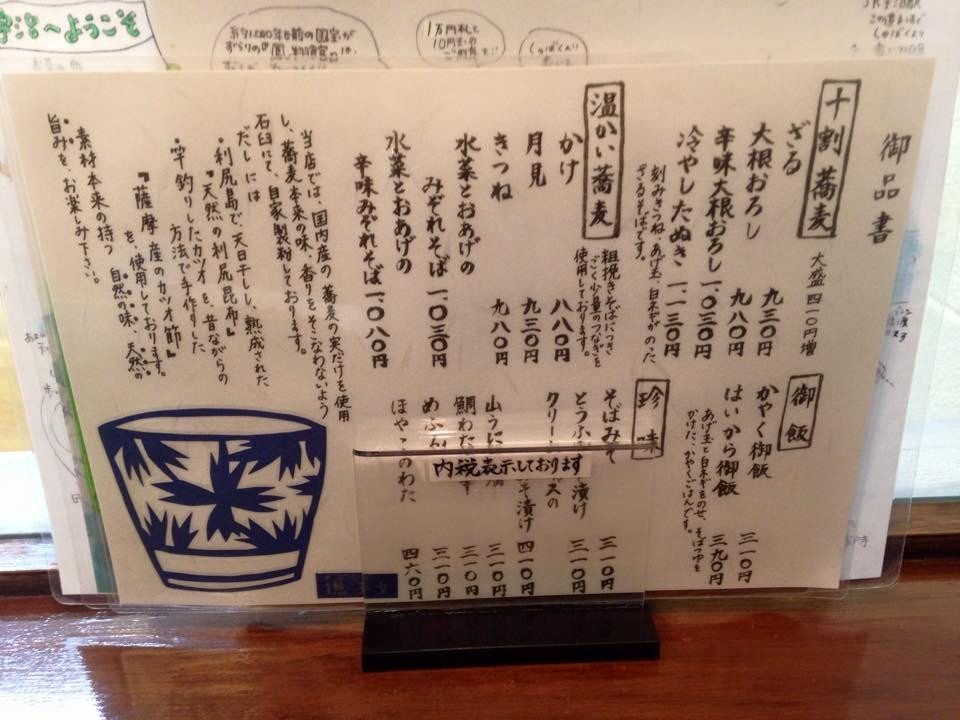 御品書
十割蕎麦 大盛四一〇円増
ざる 九三〇円
大根おろし 九八〇円
辛味大根おろし 一、〇三〇円
冷やしたぬき 一、一三〇円
刻みきつね、あげ玉、白ネギがのった
ざるそばです。
温かい蕎麦
粗挽きそばにつき
ごく少量のつなぎを
使用しております。
かけ 八八〇円
月見 九三〇円
きつね 九八〇円
水菜とおあげの
みぞれそば 一、〇三〇円
水菜とおあげの
辛味みぞれそば 一、〇八〇円
当店では、国内産の蕎麦の実だけを使用
し、蕎麦本来の味、香りをそこなわないよう
石臼にて、自家製粉しております。
だしには
・利尻島で、天日干しし、熟成された
『天然の利尻昆布』
・竿釣りしたカツオを、昔ながらの
方法で手作りした
『薩摩産のカツオ節』
を、使用しております。
・素材本来の持つ自然の味、天然の
旨みを、お楽しみ下さい。
御飯
かやく御飯 三一〇円
はいから御飯 三九〇円
あげ玉と白ネギをのせ、そばつゆを
かけた、かやくごはんです。
珍味
そばみそ 三一〇円
とうふ 漬け 三一〇円
クリー ズの
そ漬け 四一〇円
山うに 三一〇円
鯛わた 三一〇円
めふ 三一〇円
ほや このわた 四六〇円
内税表示しております
宇治へようこそ
1万円札と
10円玉の